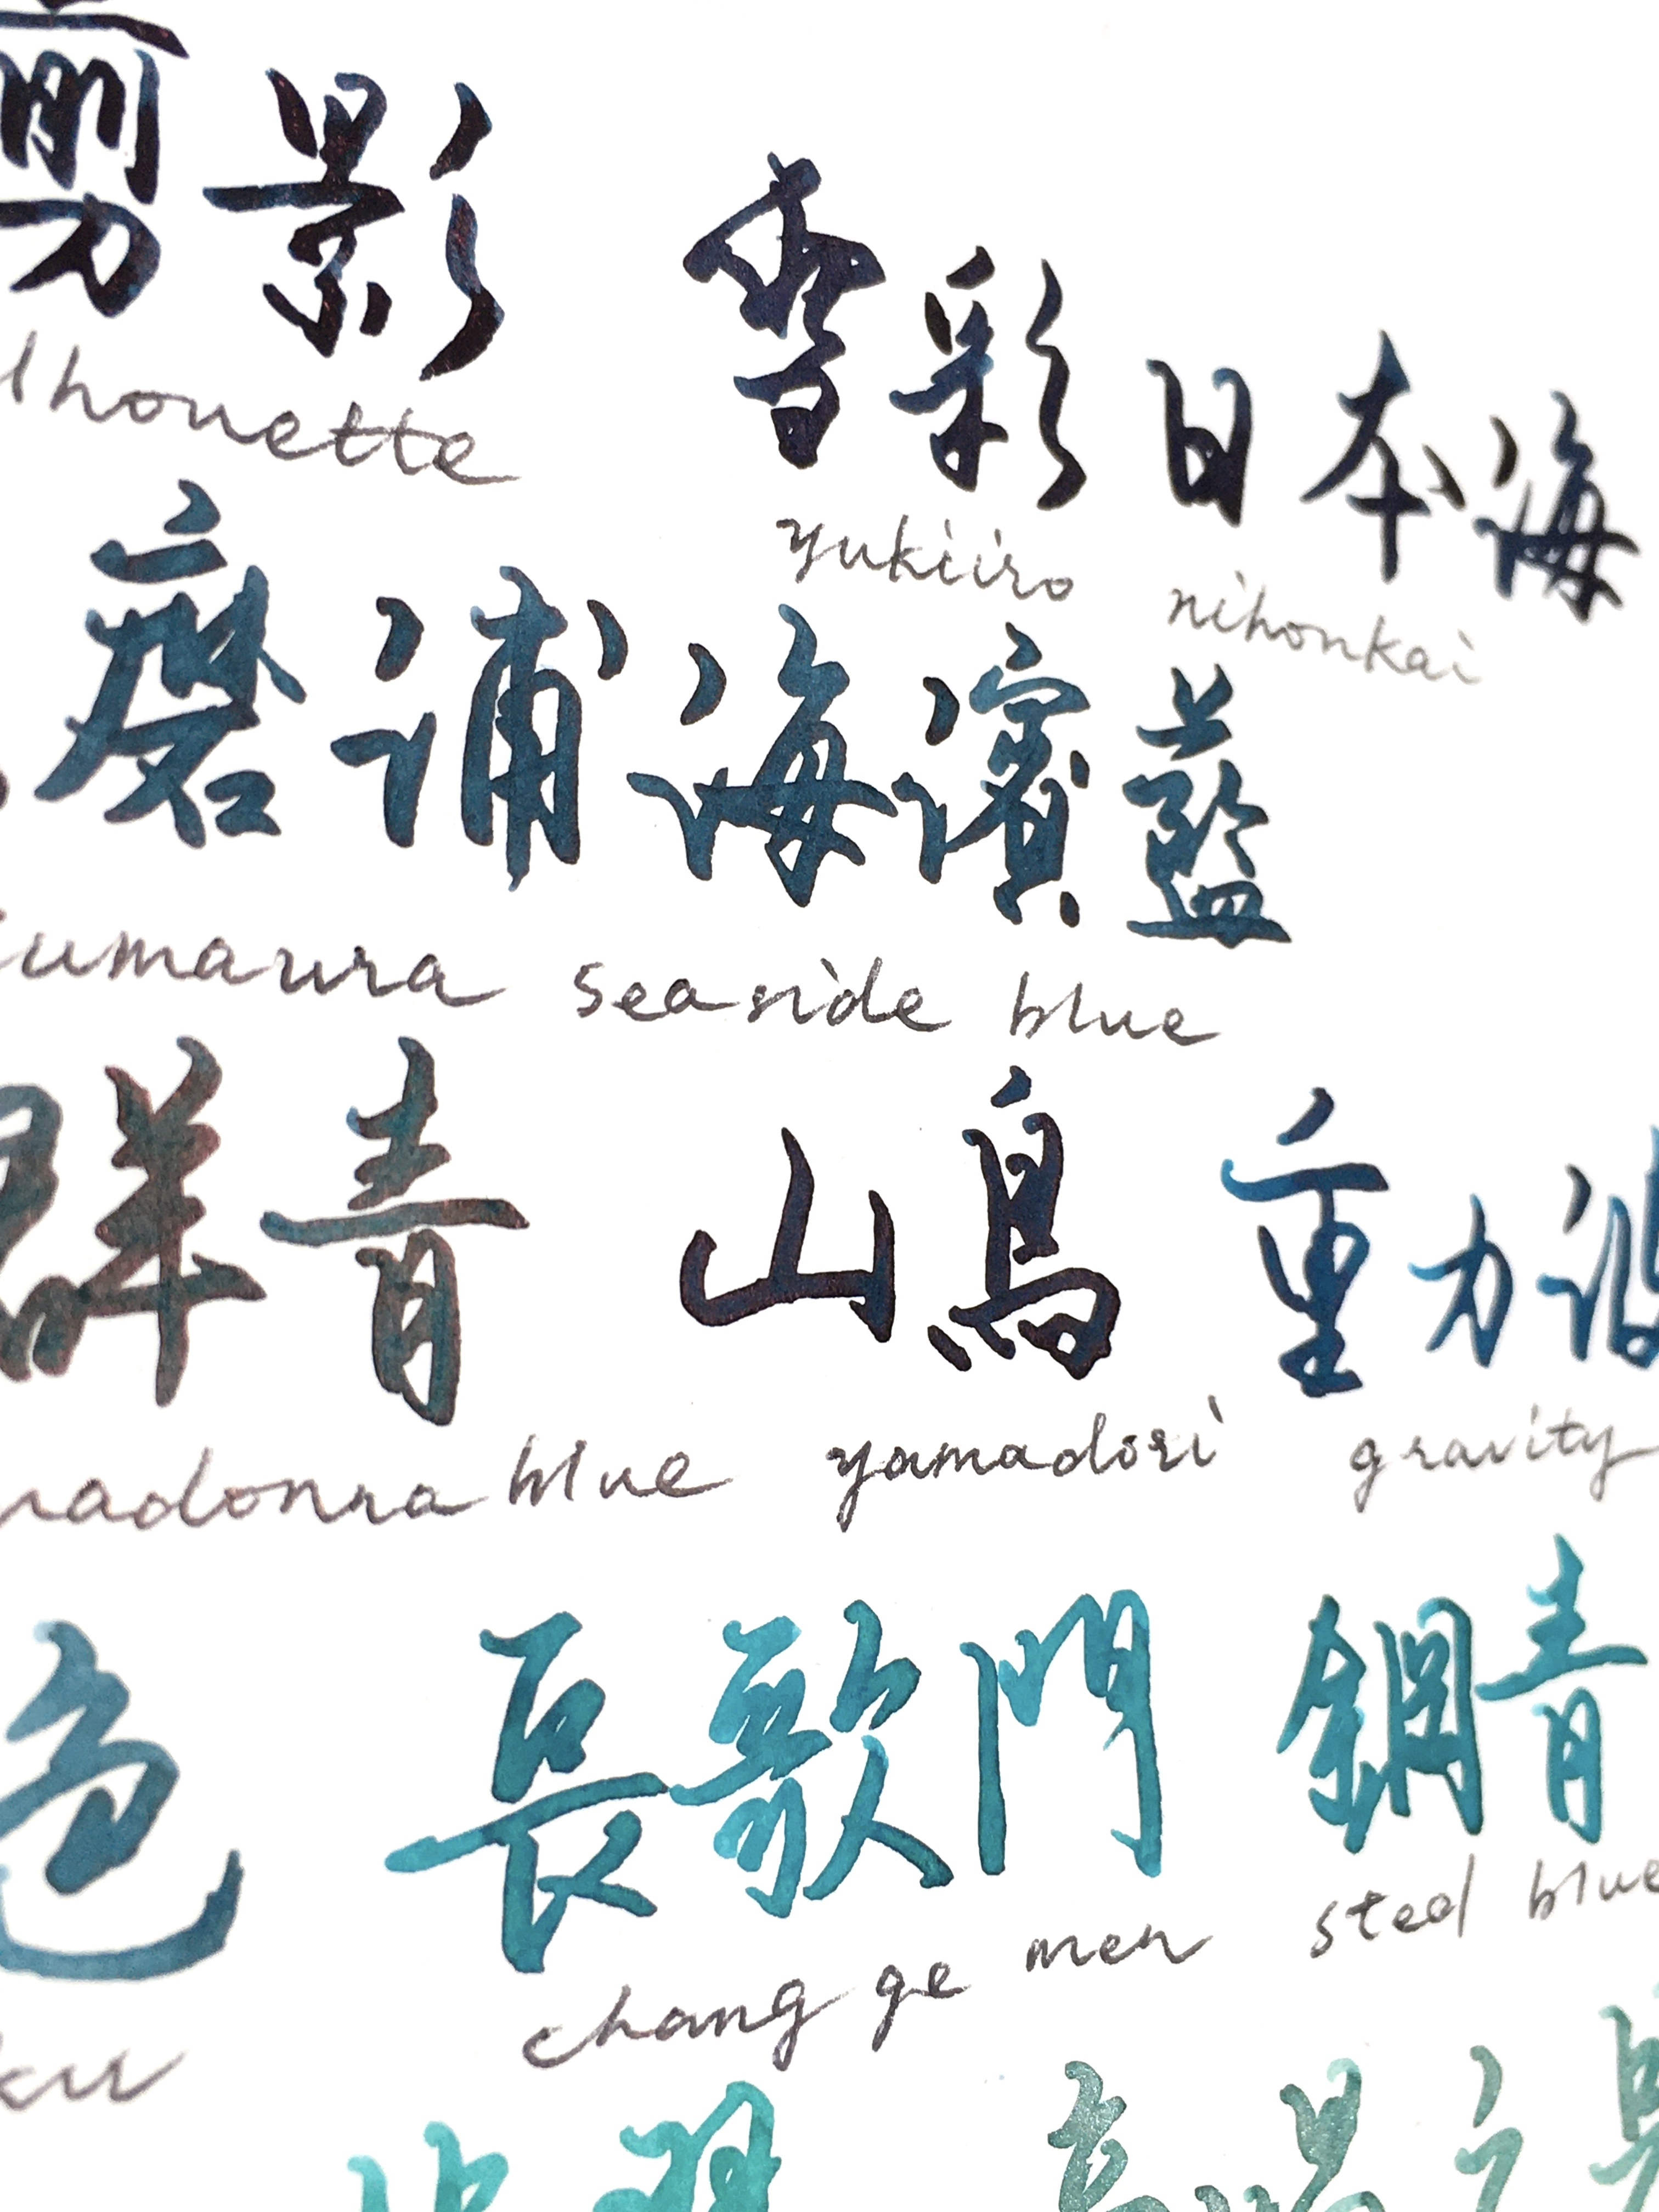 剪影 雪彩 日本海
lhouette yukiiro nihonkai
磨浦海濱藍
umaura seaside blue
群青 山鳥 重力波
madonna blue yamadori gravity
色 長歌門 鋼青
ku chang ge men steel blue